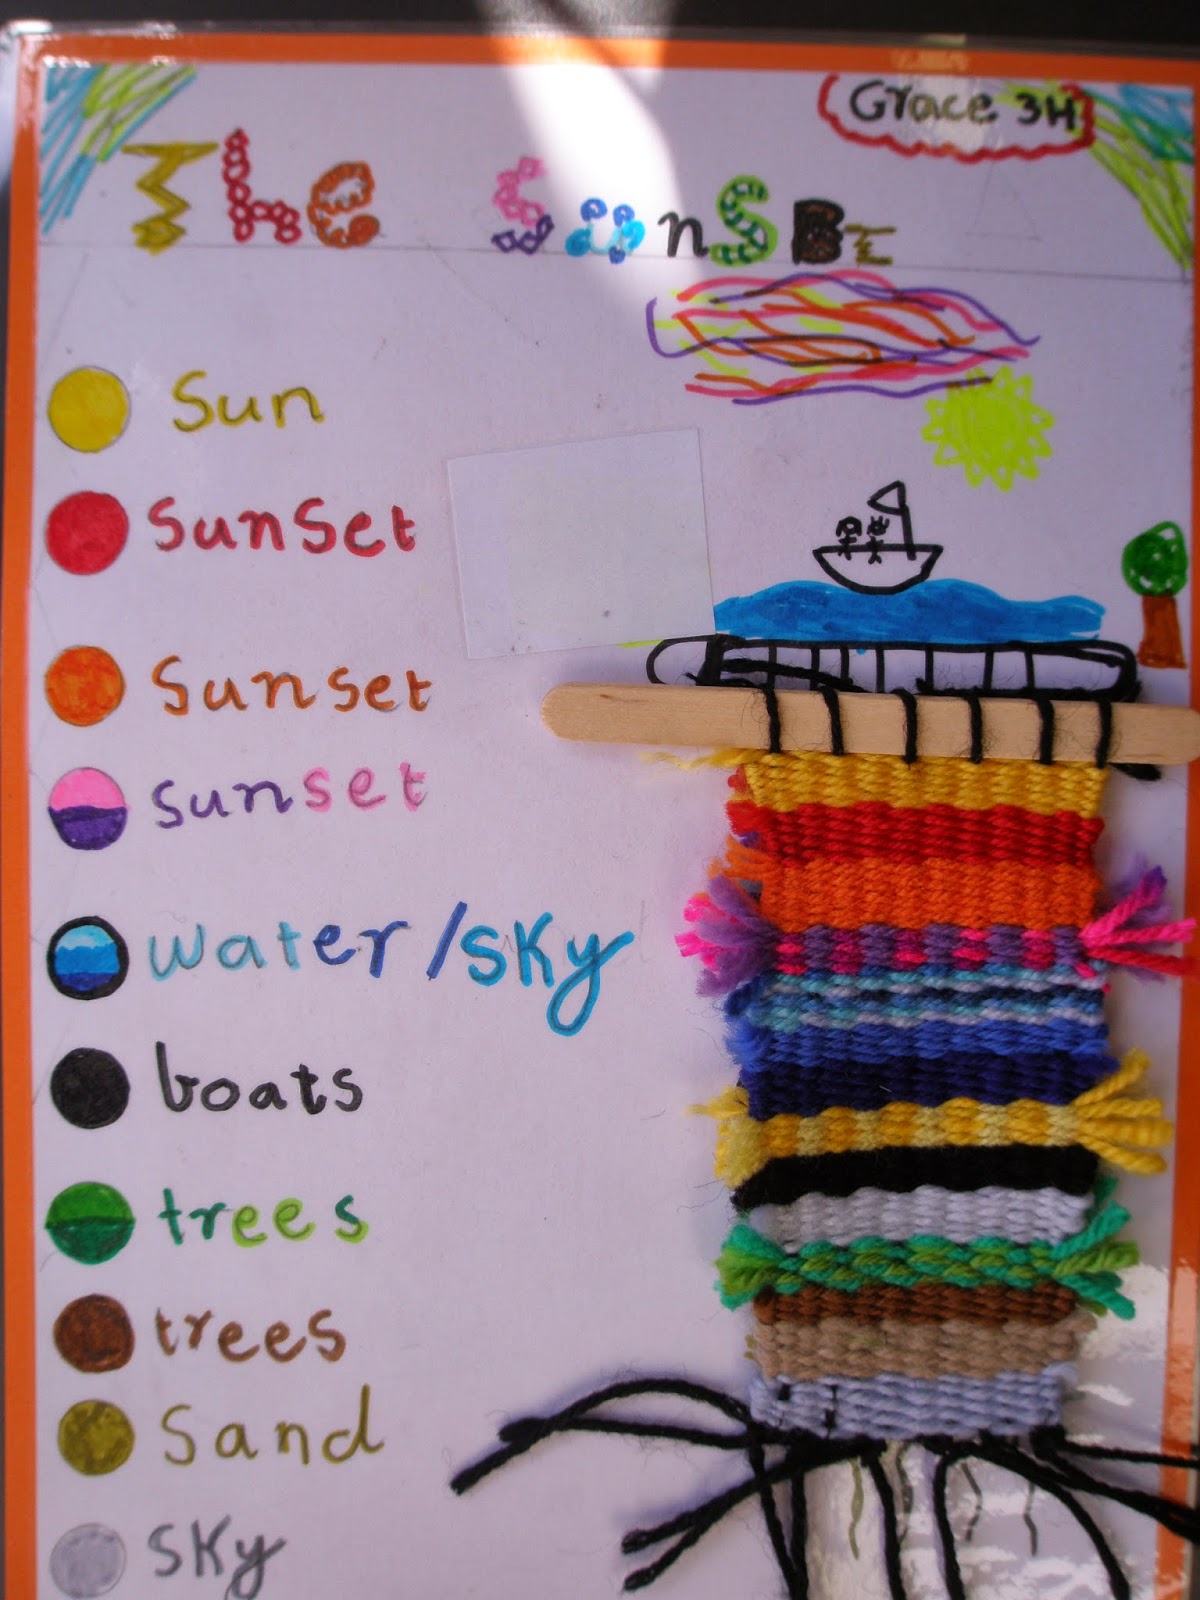 Grace 3H
The SunSET
Sun
Sunset
Sunset
Sunset
water/sky
boats
trees
trees
Sand
sky